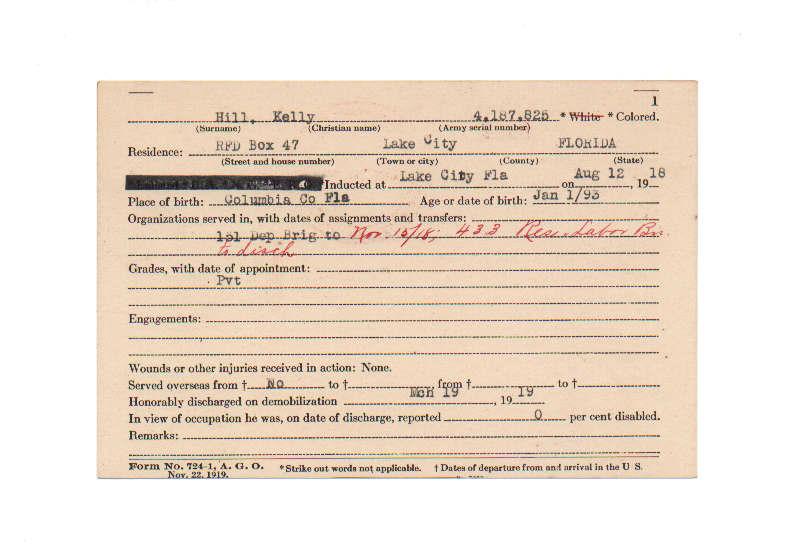 1
Hill, Kelly 4,187,825 * White * Colored.
(Surname) (Christian name) (Army serial number)
Residence: RFD Box 47 Lake City FLORIDA
(Street and house number) (Town or city) (County) (State)
Inducted at Lake City Fla on Aug 12, 1918
Place of birth: Columbia Co Fla Age or date of birth: Jan 1/93
Organizations served in, with dates of assignments and transfers:
151 Dep Brig to Nov 15/18; 433 Res. Labor Bn.
to disch
Grades, with date of appointment:
Pvt
Engagements:
Wounds or other injuries received in action: None.
Served overseas from † No to †, from † to †
Honorably discharged on demobilization Mch 19, 1919
In view of occupation he was, on date of discharge, reported 0 per cent disabled.
Remarks:
Form No. 724-1, A. G. O. *Strike out words not applicable. † Dates of departure from and arrival in the U S.
Nov. 22, 1919.